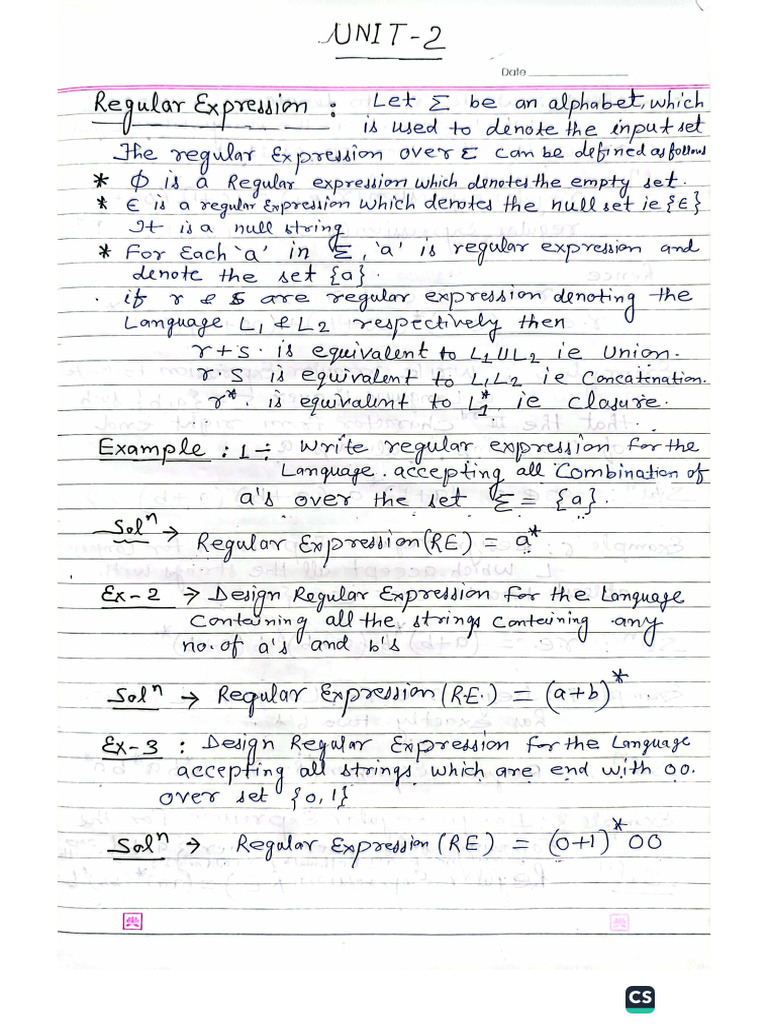 UNIT-2
Date
Regular Expression : Let Σ be an alphabet, which
is used to denote the input set
The regular Expression over Σ can be defined as follows
* Φ is a Regular expression which denotes the empty set.
* ϵ is a regular Expression which denotes the null set ie {ϵ}
It is a null string
* For Each 'a' in Σ, 'a' is regular expression and
denote the set {a}.
. if r & s are regular expression denoting the
Language L₁ & L₂ respectively then
r+s . is equivalent to L₁UL₂ ie Union.
r.s is equivalent to L₁L₂ ie Concatenation.
r*. is equivalent to L₁* ie closure.
Example : 1 ÷ Write regular expression for the
Language . accepting all Combination of
a's over the set Σ = {a}.
Solⁿ → Regular Expression (RE) = a*
Ex-2 → Design Regular Expression for the Language
Containing all the strings containing any
no. of a's and b's
Solⁿ → Regular Expression (R.E.) = (a+b)*
Ex-3 : Design Regular Expression for the Language
accepting all strings which are end with 00.
over set {0,1}
Solⁿ → Regular Expression (RE) = (0+1)* 00
CS